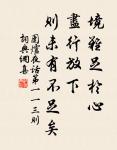 境難足於心
盡行放下
則未有不足矣
圍爐夜話第一一三則
詞典網集